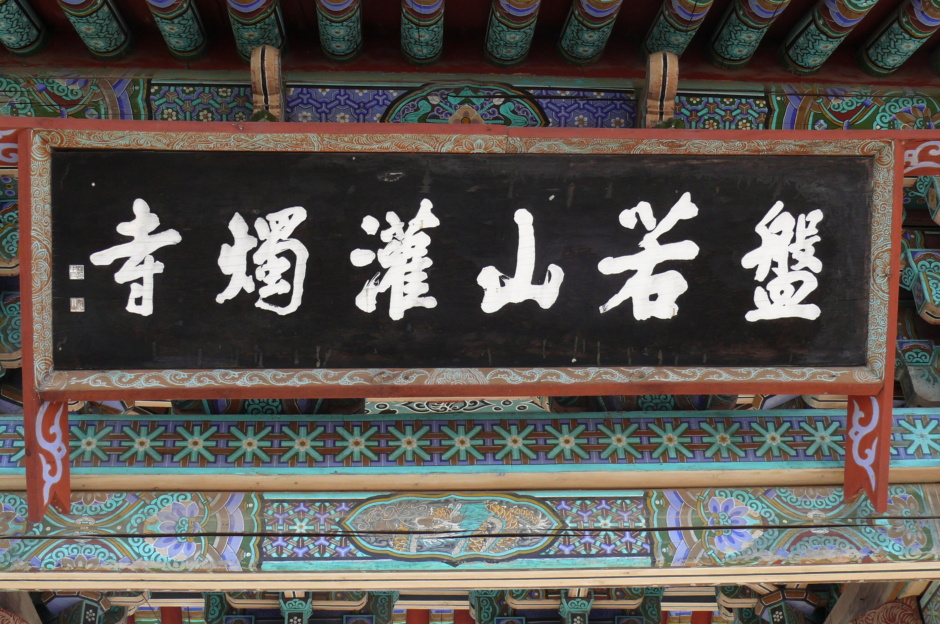 盤若山灌燭寺